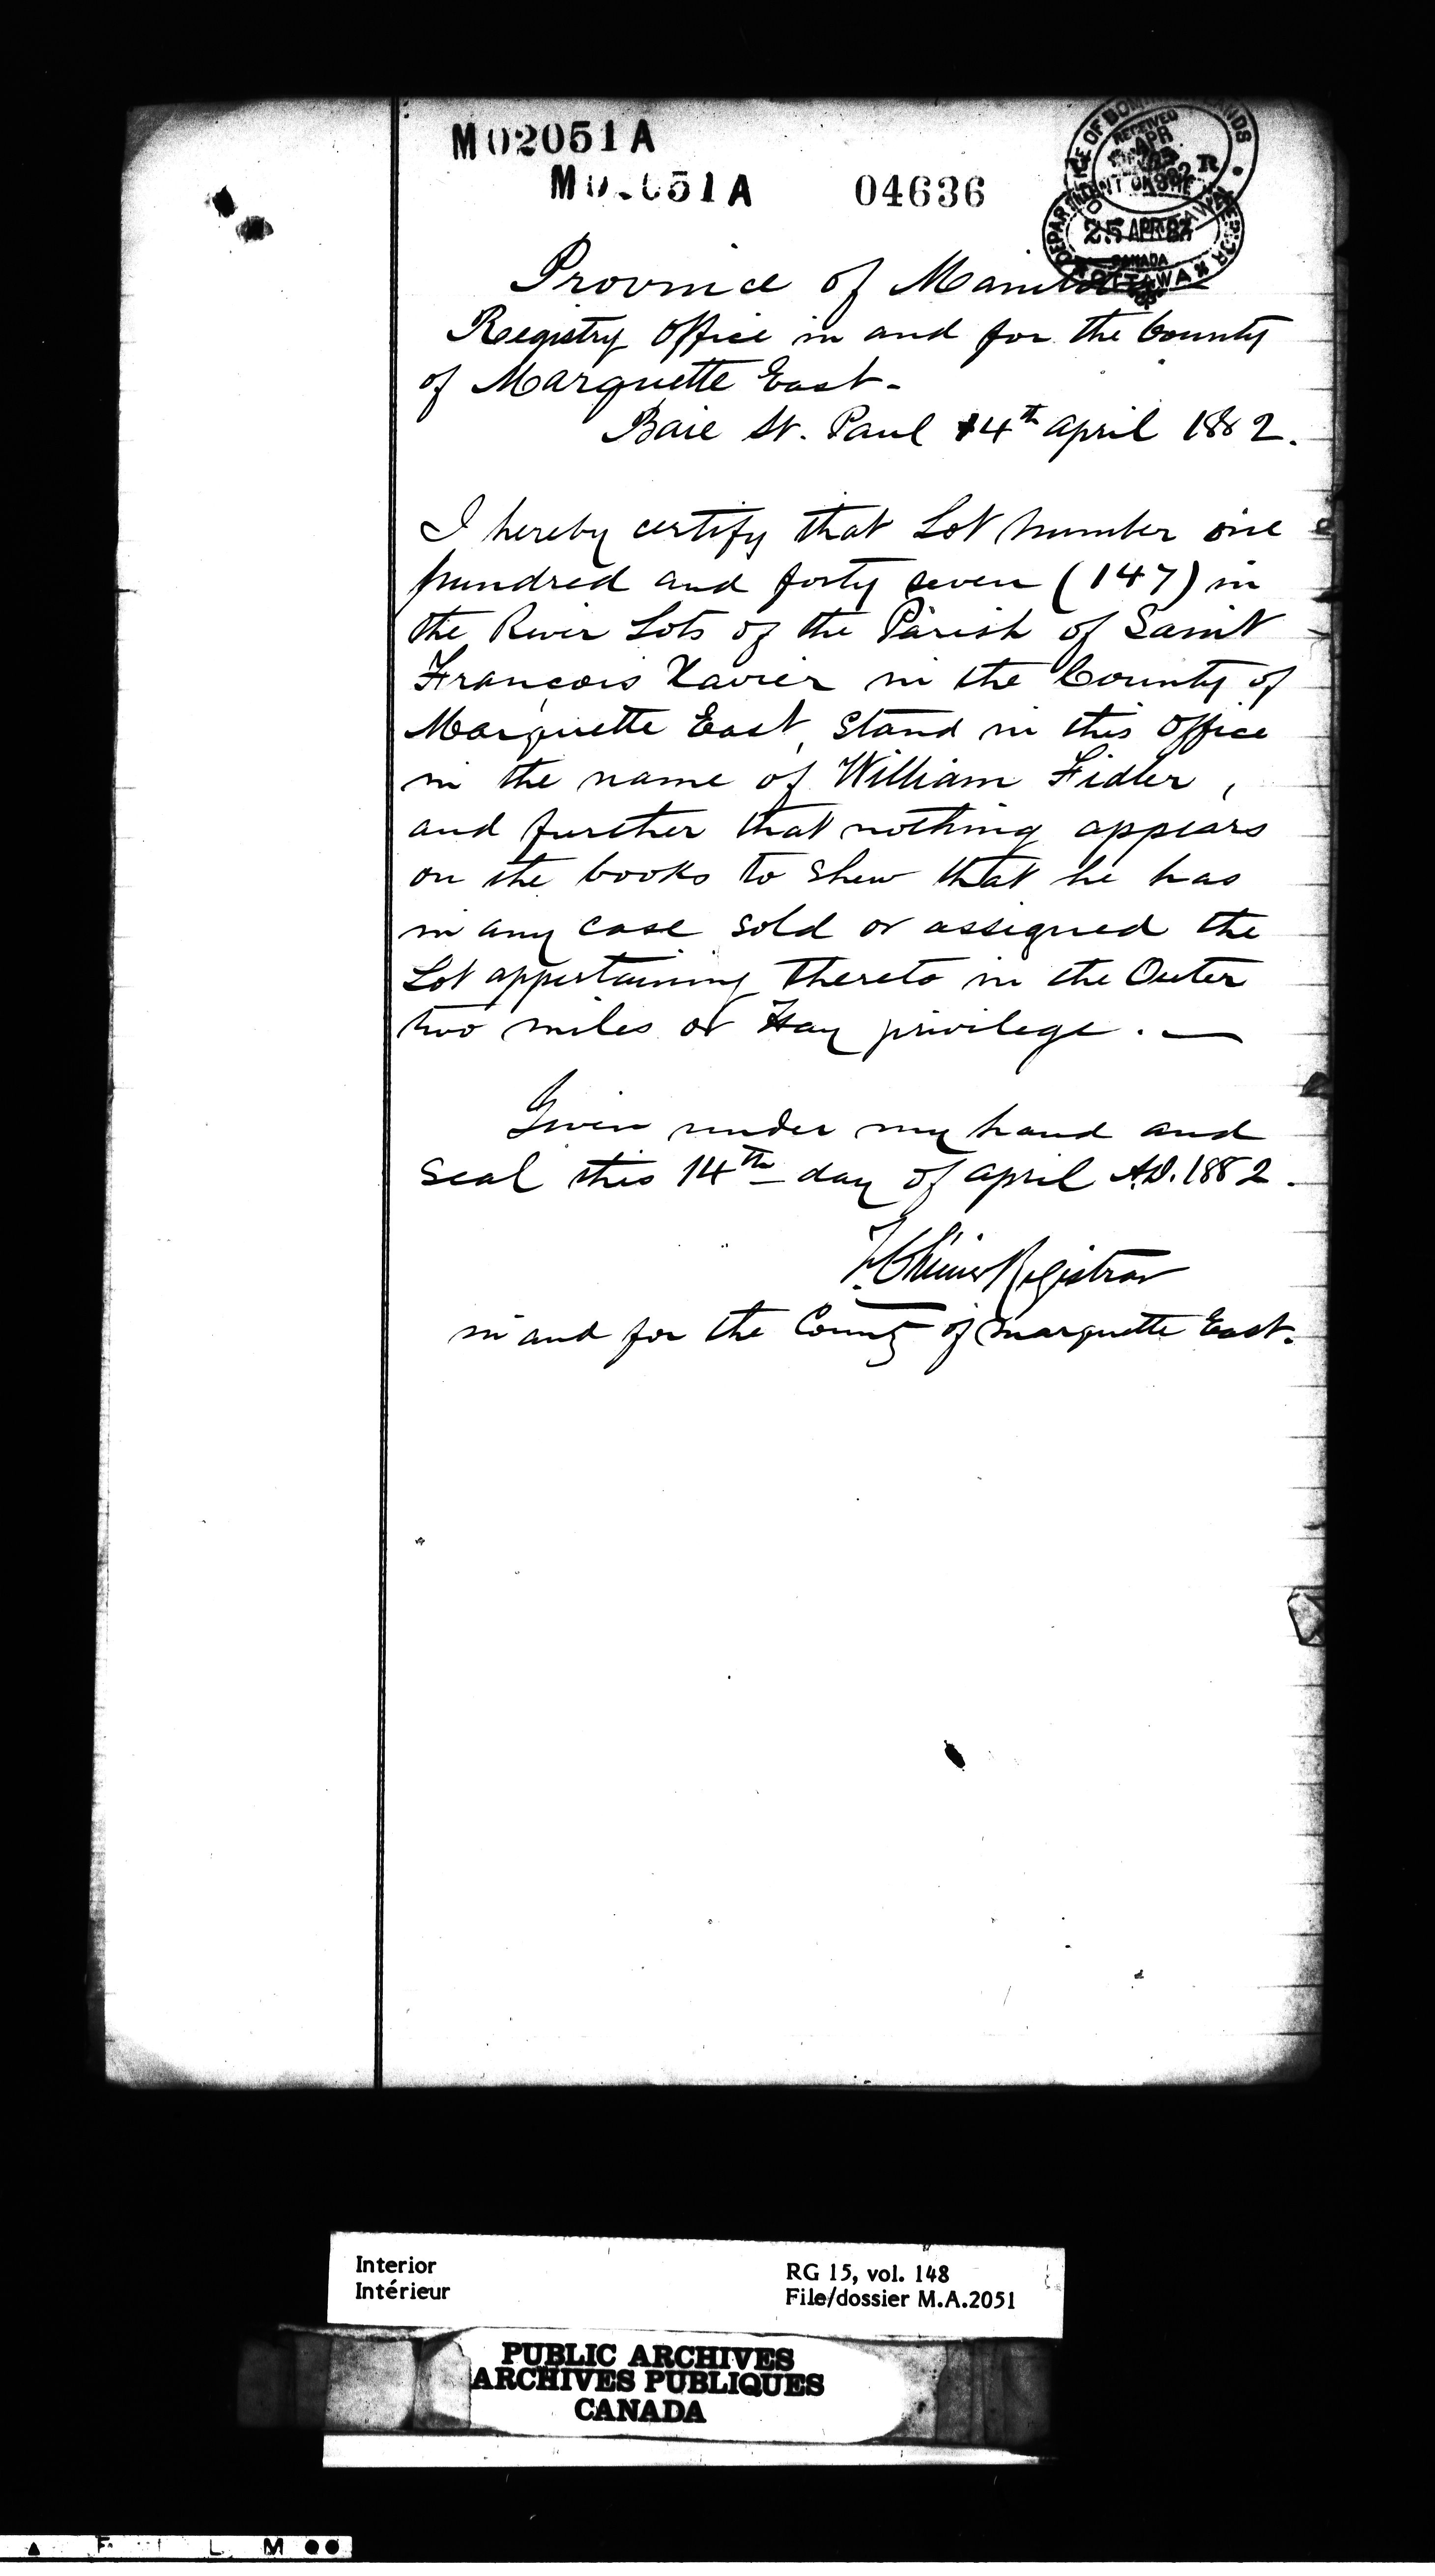 M02051A
M 051A 04636
OF DOMINION LANDS
RECEIVED
APR
1882
25 APR 82
CANADA
OTTAWA
Province of Manitoba
Registry Office in and for the County
of Marquette East -
Baie St. Paul 14th April 1882.
I hereby certify that Lot number one
hundred and forty seven (147) in
the River Lots of the Parish of Saint
Francois Xavier in the County of
Marquette East, stand in this office
in the name of William Fidler,
and further that nothing appears
on the books to shew that he has
in any case sold or assigned the
Lot appertaining thereto in the Outer
two miles or Hay privilege. —
Given under my hand and
seal this 14th day of April A.D. 1882.
Registrar
in and for the County of Marquette East.
Interior
Intérieur
RG 15, vol. 148
File/dossier M.A.2051
PUBLIC ARCHIVES
ARCHIVES PUBLIQUES
CANADA
F I L M